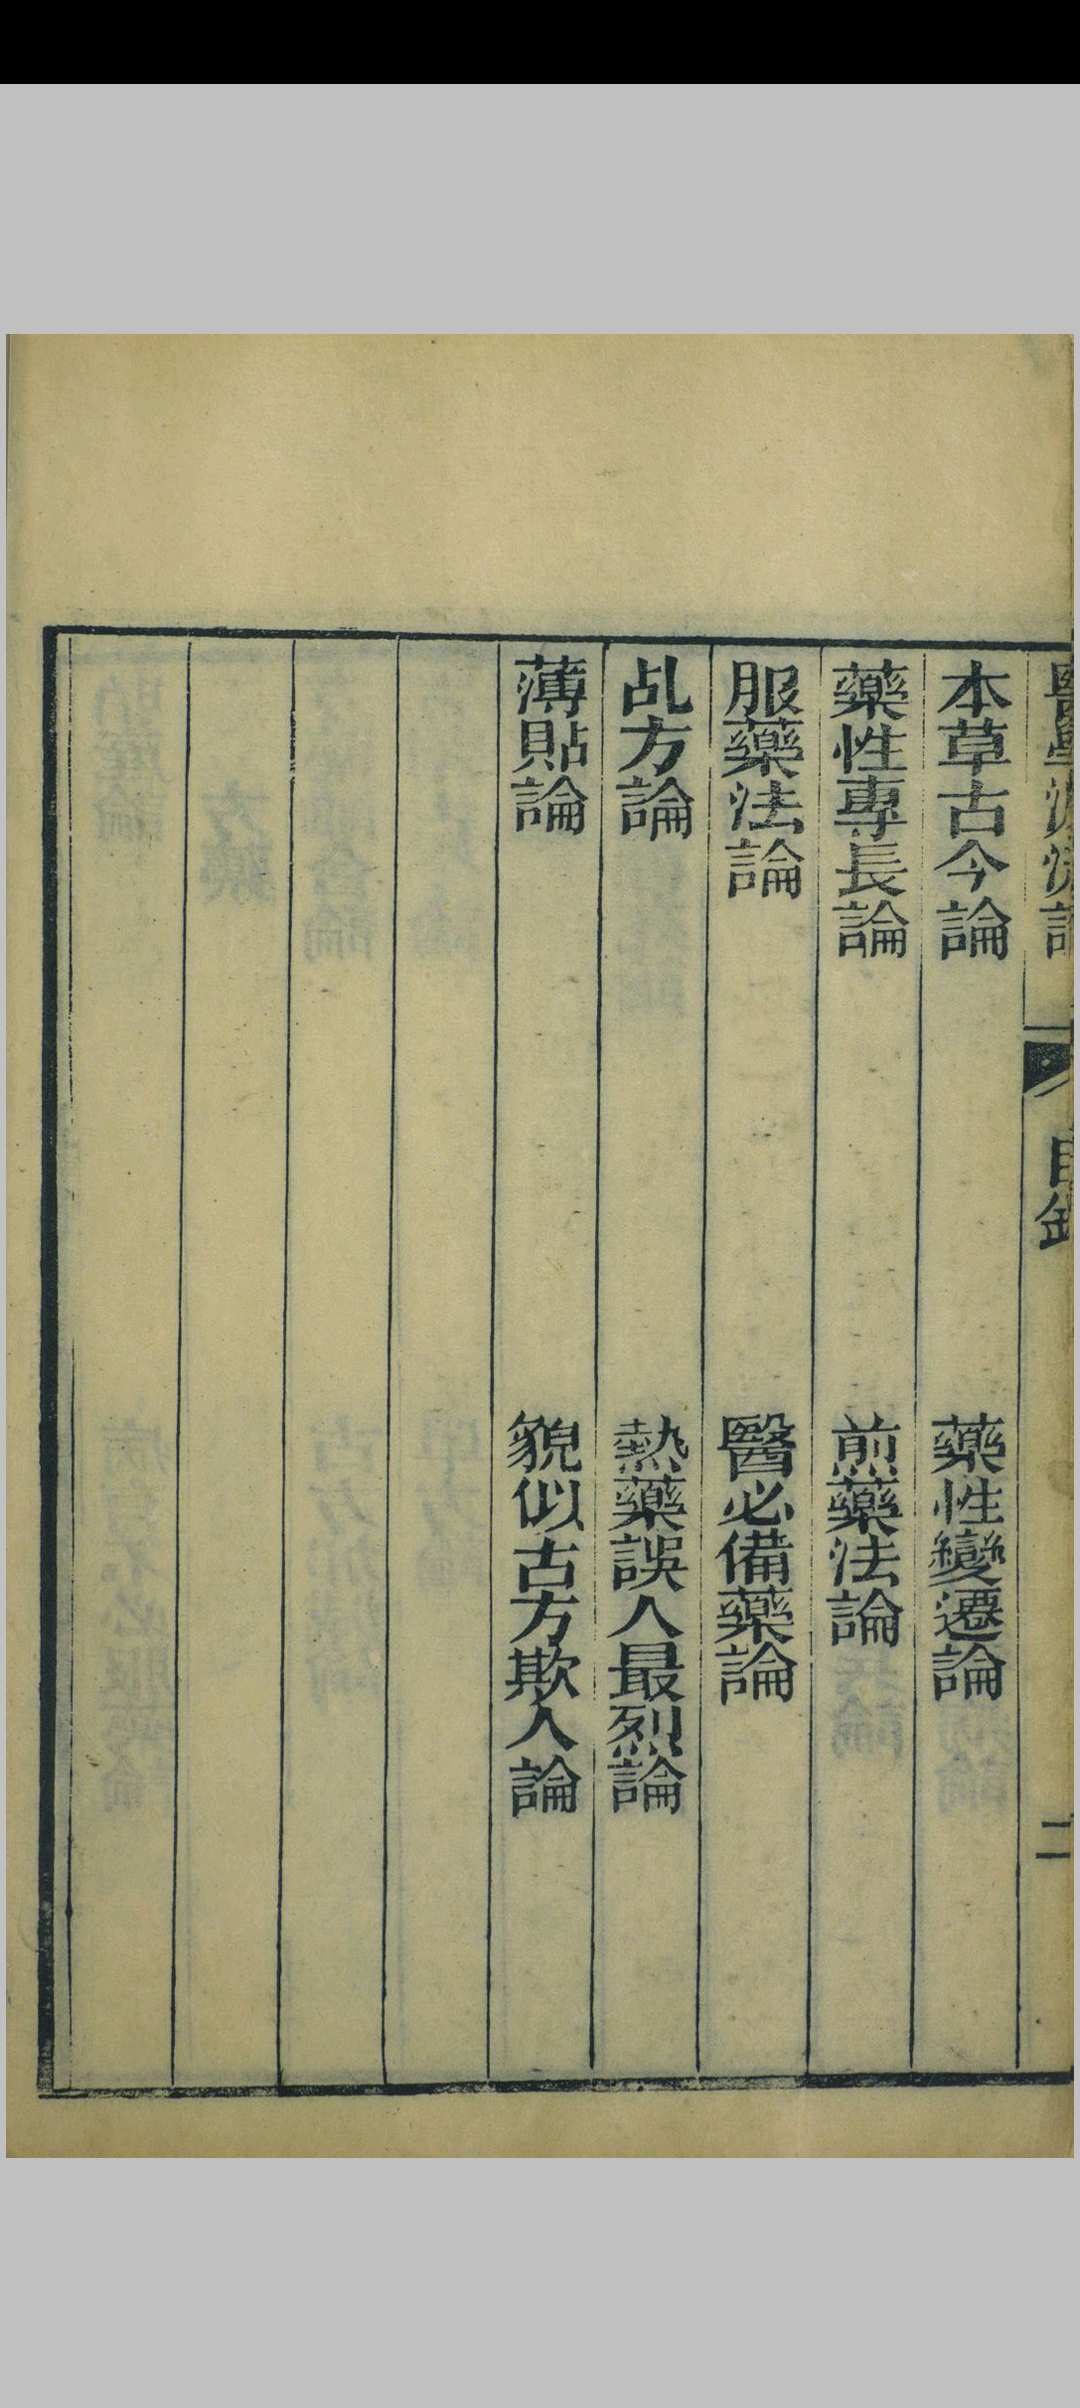 本草古今論
藥性變遷論
藥性專長論
煎藥法論
服藥法論
醫必備藥論
乩方論
熱藥誤人最烈論
薄貼論
貌似古方欺人論
目錄
二